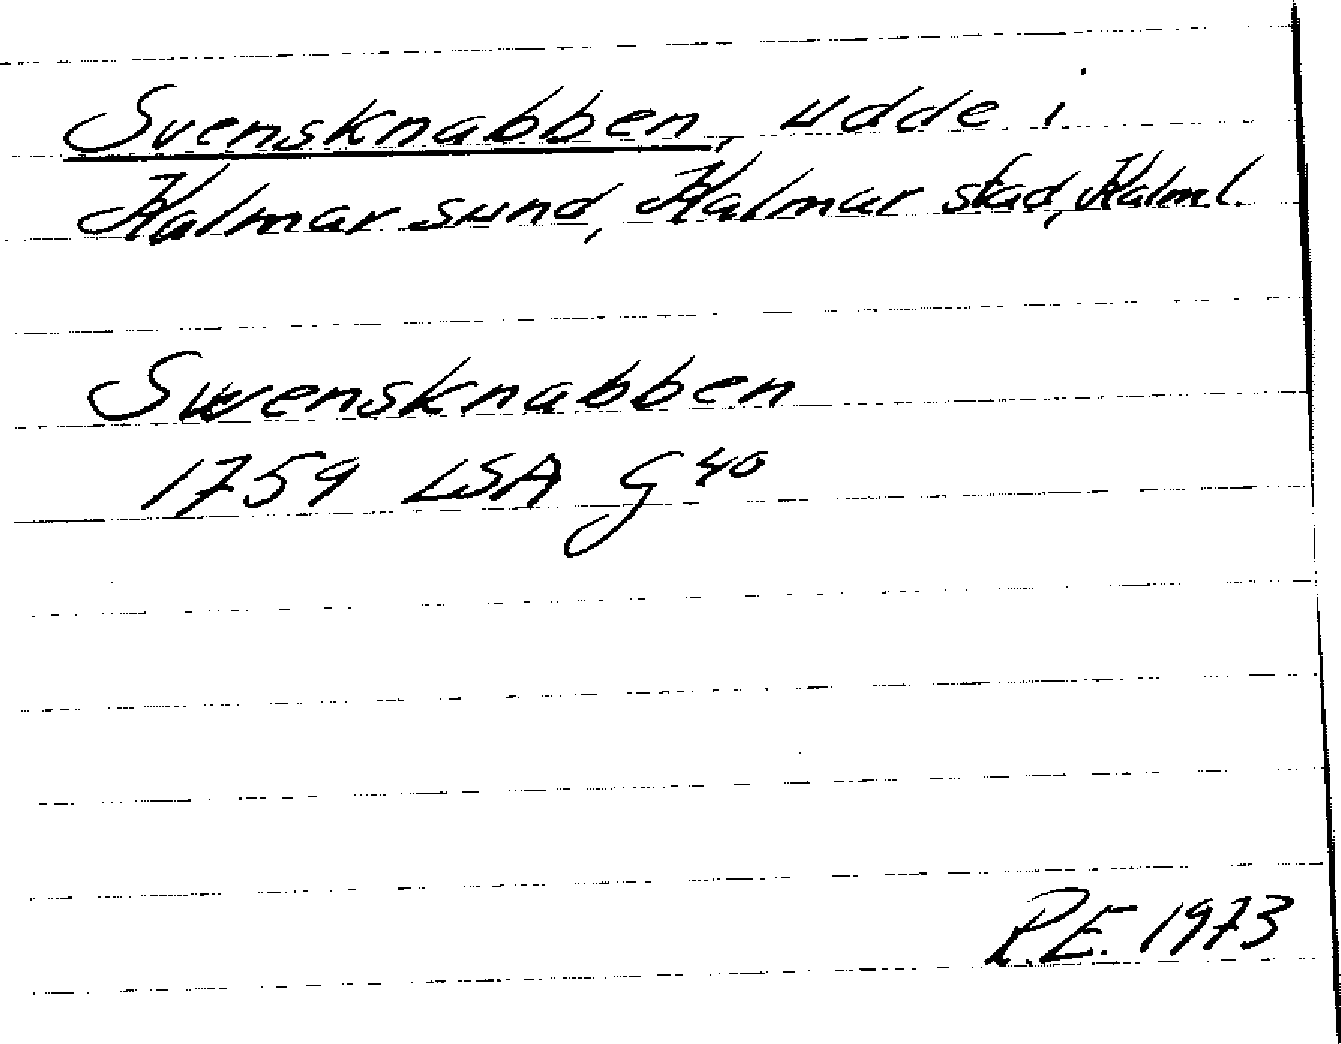 Svensknabben, udde i
Kalmar sund, Kalmar stad, Kalml.
Swensknabben
1759 LSA G 40
R.E. 1973